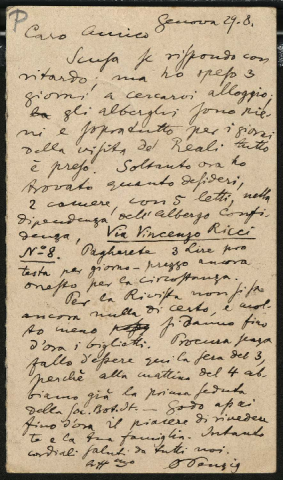 P
Genova 29.8.
Caro Amico
Scusa se rispondo con
ritardo; ma ho speso 3
giorni a cercarvi alloggio;
gli alberghi sono pie-
ni e sopratutto per i giorni
della visita de' Reali tutto
è preso. Soltanto ora ho
trovato quanto desideri,
2 camere con 5 letti, nella
dipendenza dell'Albergo Confi-
denza, Via Vincenzo Ricci
No 8. Pagherete 3 Lire pro
testa per giorno - prezzo ancora
onesto per la circostanza.
Per la Rivista non si sa
ancora nulla di certo, e mol-
to meno si danno fino
d'ora i biglietti. Procura senza
fallo d'essere qui la sera del 3,
perchè alla mattina del 4 ab-
biamo già la prima seduta
della Soc. Bot. It. - Godo assai
fino d'ora il piacere di riveder-
te e la tua famiglia. Intanto
cordiali saluti da tutti noi.
Aff.mo
O Penzig